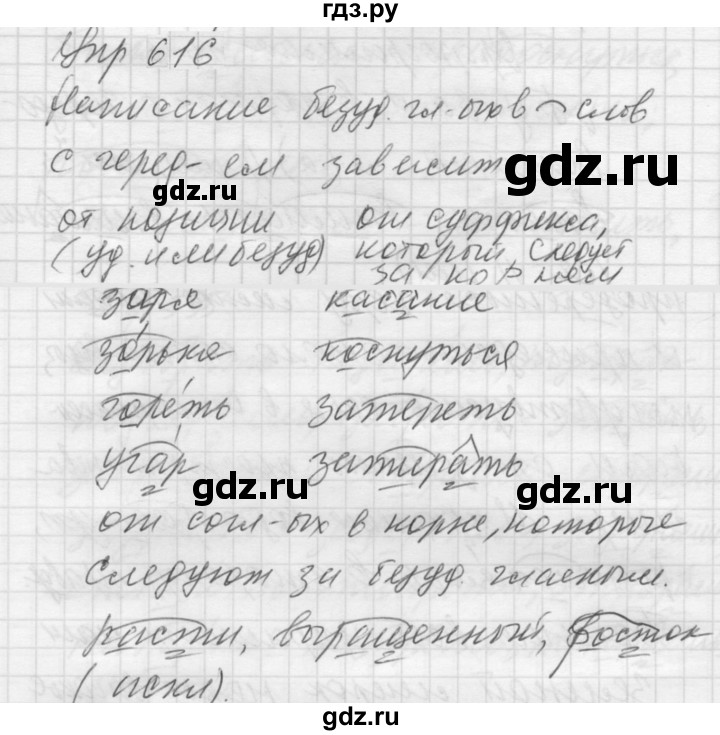 гдз.ру
Упр 616
Написание безуд. гл-ых в слов
с черед-ем зависит
gdz.ru
gdz.ru
от позиции от суффикса,
(уд. или безуд) который следует
за корнем
заря касание
зорька коснуться
гореть затереть
угар затирать
gdz.ru
gdz.ru
от согл-ых в корне, которые
следуют за безуд. гласным.
расти, выращенный, росток
(искл).
gdz.ru